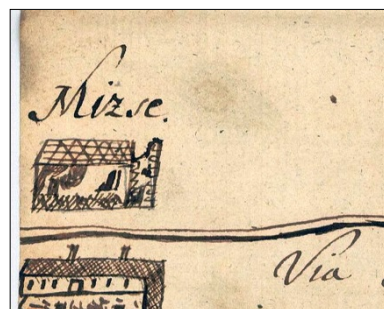 Mizse.
Via